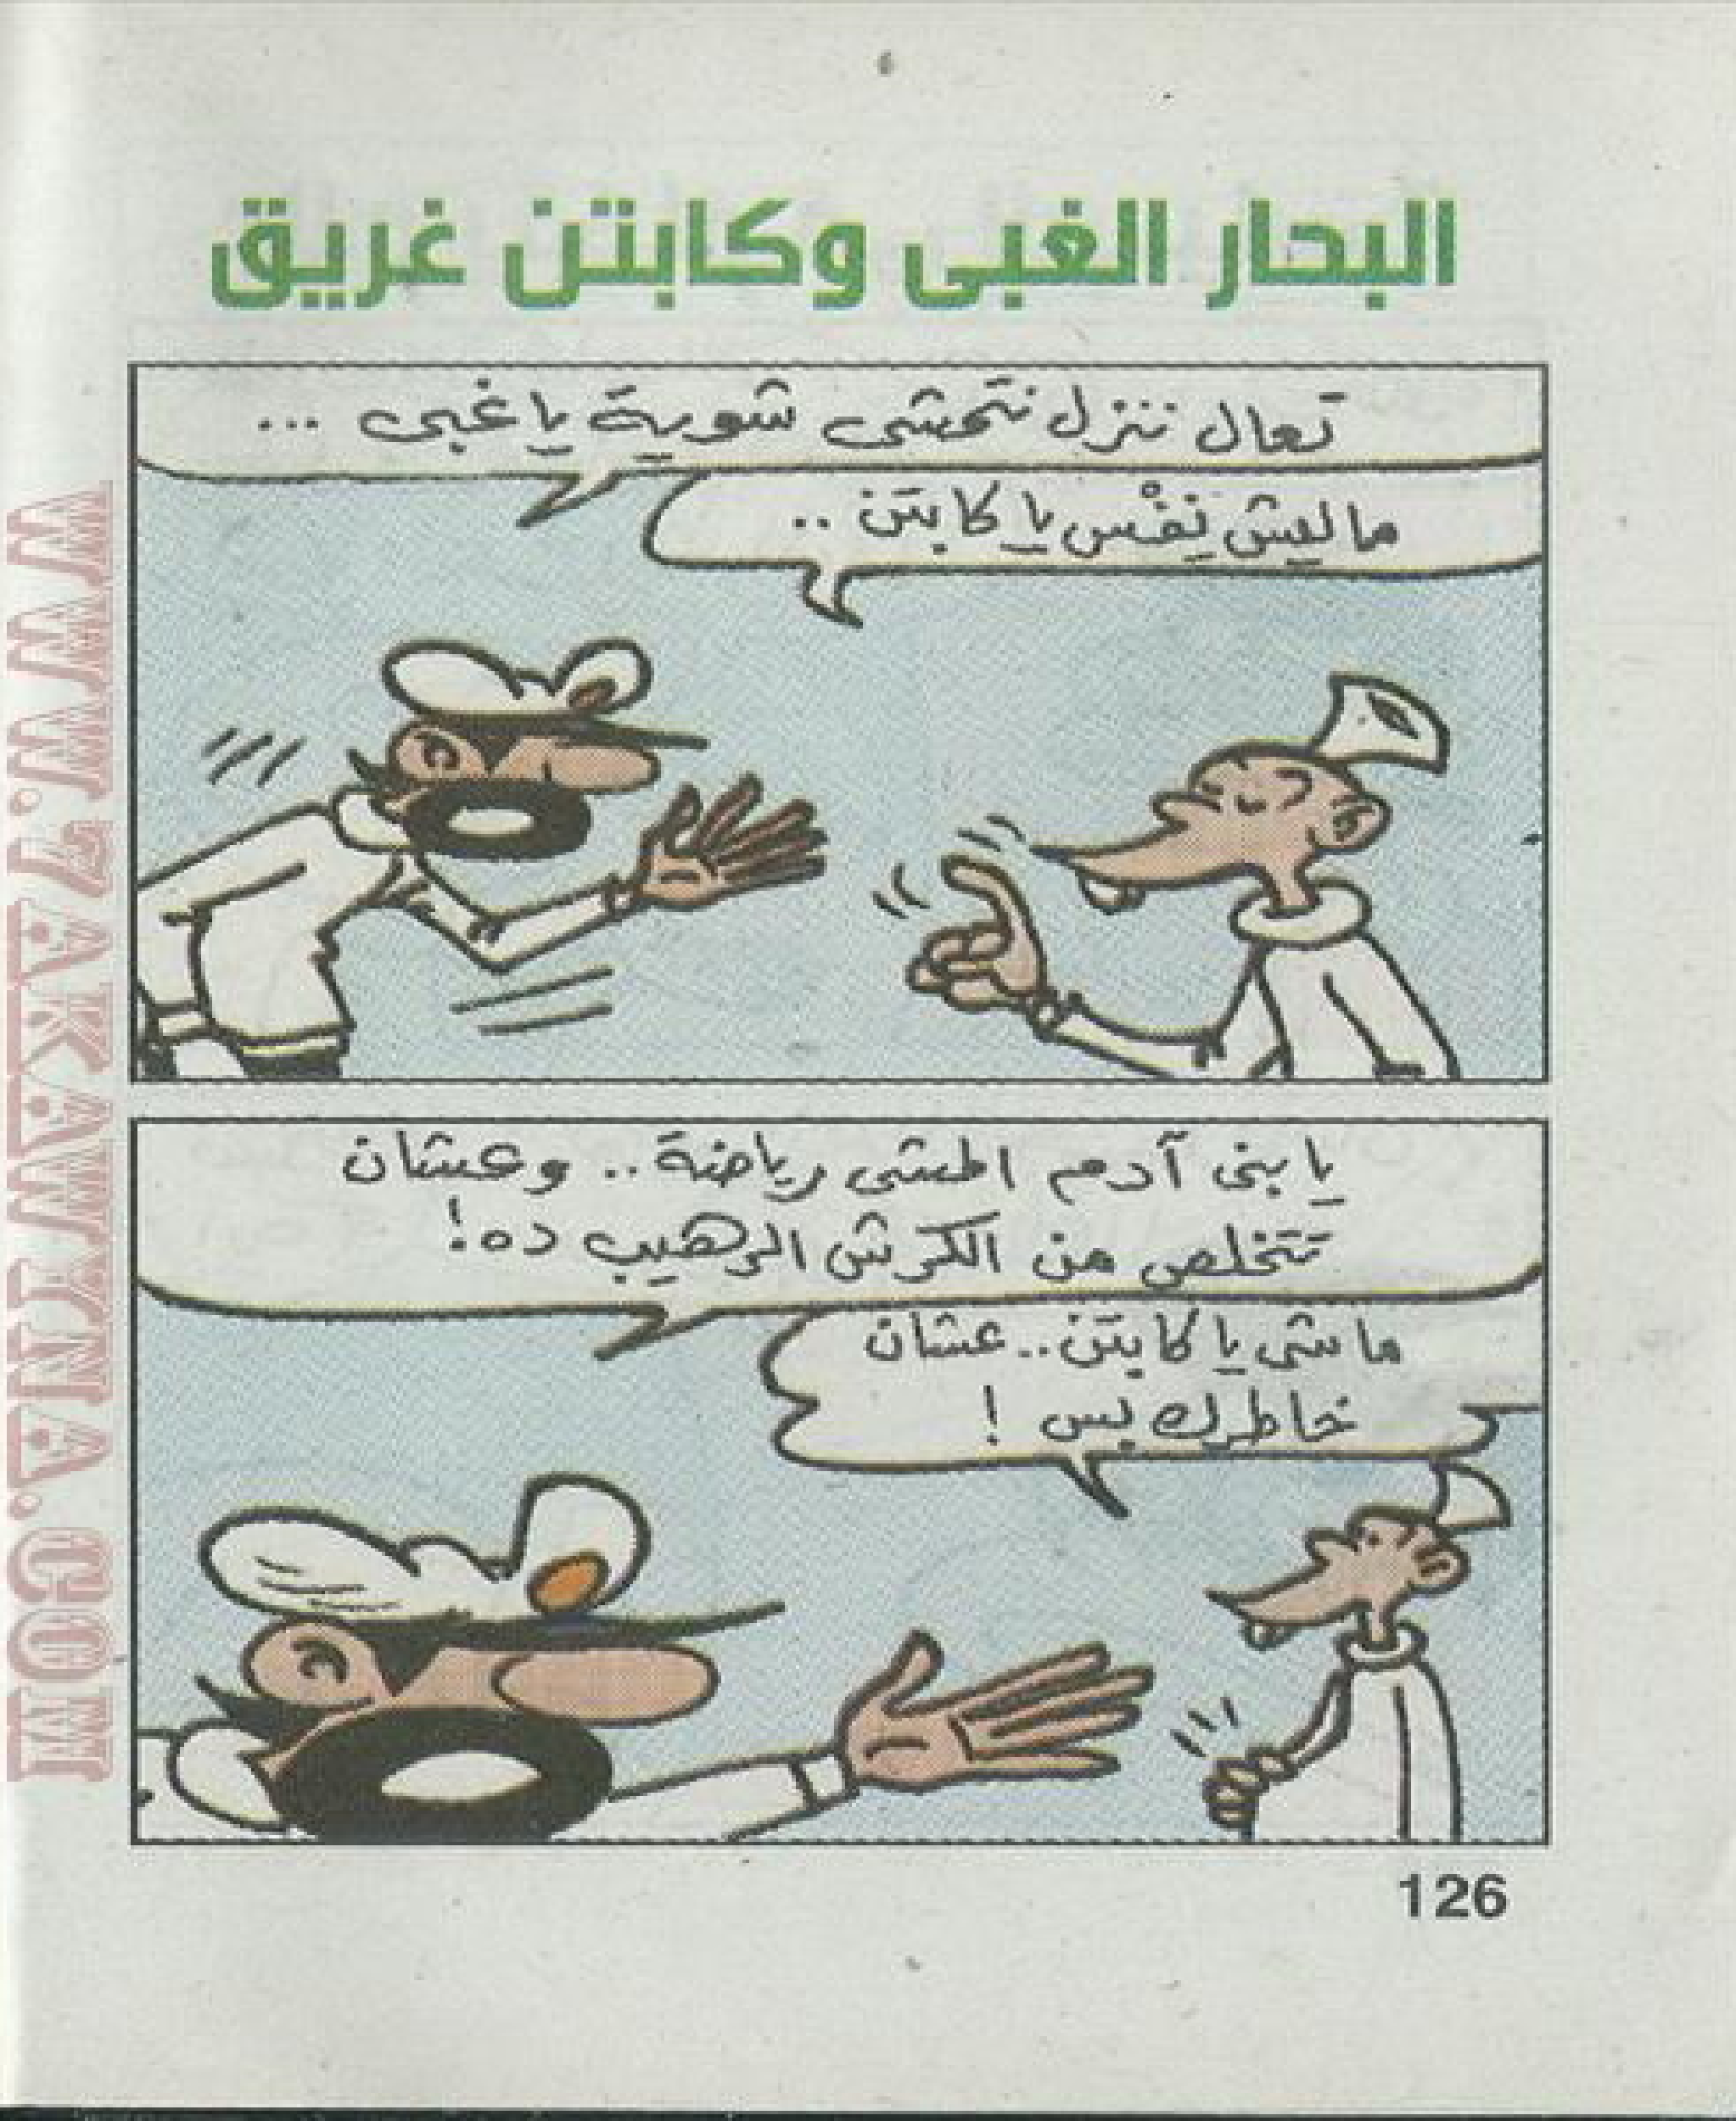 البحار الغبى وكابتن غريق
تعال ننزل نتمشى شوية يا غبى ...
ماليش نِفْس يا كابتن ..
يا بنى آدم المشى رياضة .. وعشان
تتخلص من الكرش الرهيب ده !
ماشى يا كابتن .. عشان
خاطرك بس !
126
WWW.7AKAWINA.COM